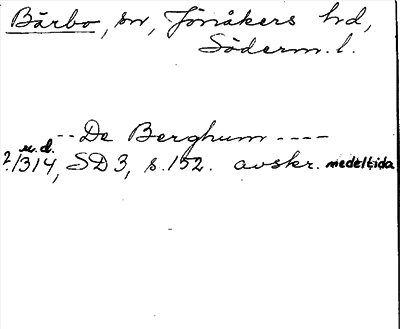 Bärbo, sn, Jönåkers hd,
Söderm. l.
-- De Berghum ----
u.d.
?/1314, SD 3, s. 152. avskr. medeltida